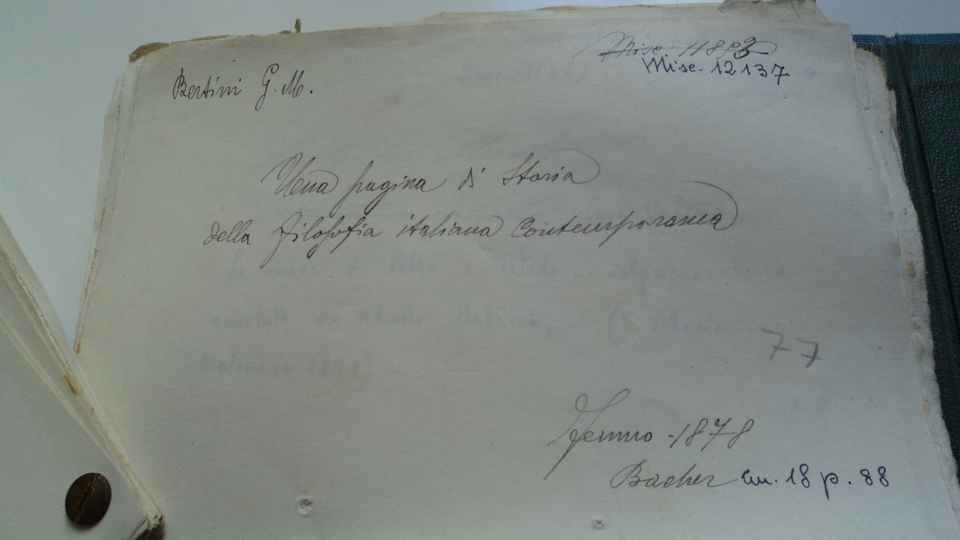 Misc. 12137
Bertini G. M.
Una pagina di Storia
della filosofia italiana contemporanea
77
1878
an. 18 p. 88